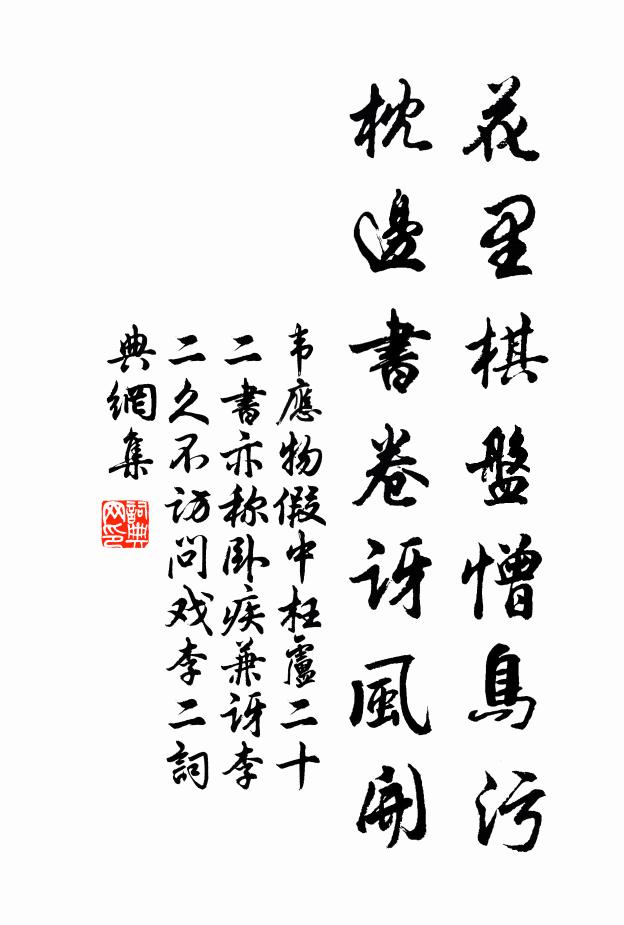 花里棋盤憎鳥污
枕邊書卷訝風開
韦應物假中枉盧二十
二書亦称卧疾兼訝李
二久不访问戏李二詞
典網集
詞典
网印